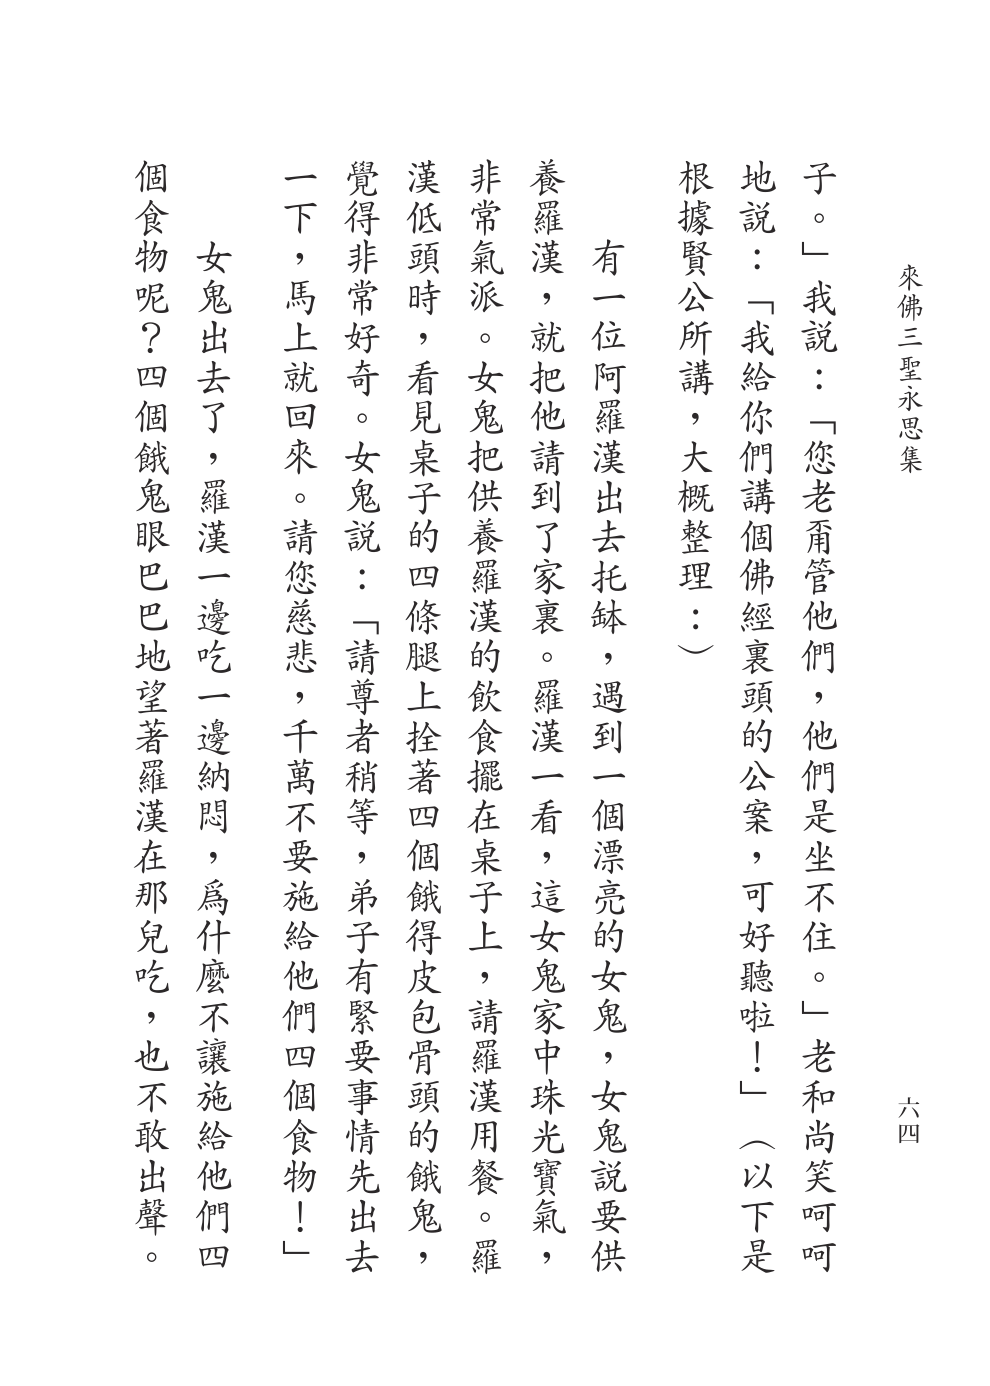 來佛三聖永思集
六四
子。」我説：「您老甭管他們，他們是坐不住。」老和尚笑呵呵
地説：「我給你們講個佛經裏頭的公案，可好聽啦！」（以下是
根據賢公所講，大概整理：）
有一位阿羅漢出去托缽，遇到一個漂亮的女鬼，女鬼説要供
養羅漢，就把他請到了家裏。羅漢一看，這女鬼家中珠光寶氣，
非常氣派。女鬼把供養羅漢的飲食擺在桌子上，請羅漢用餐。羅
漢低頭時，看見桌子的四條腿上拴著四個餓得皮包骨頭的餓鬼，
覺得非常好奇。女鬼説：「請尊者稍等，弟子有緊要事情先出去
一下，馬上就回來。請您慈悲，千萬不要施給他們四個食物！」
女鬼出去了，羅漢一邊吃一邊納悶，爲什麼不讓施給他們四
個食物呢？四個餓鬼眼巴巴地望著羅漢在那兒吃，也不敢出聲。